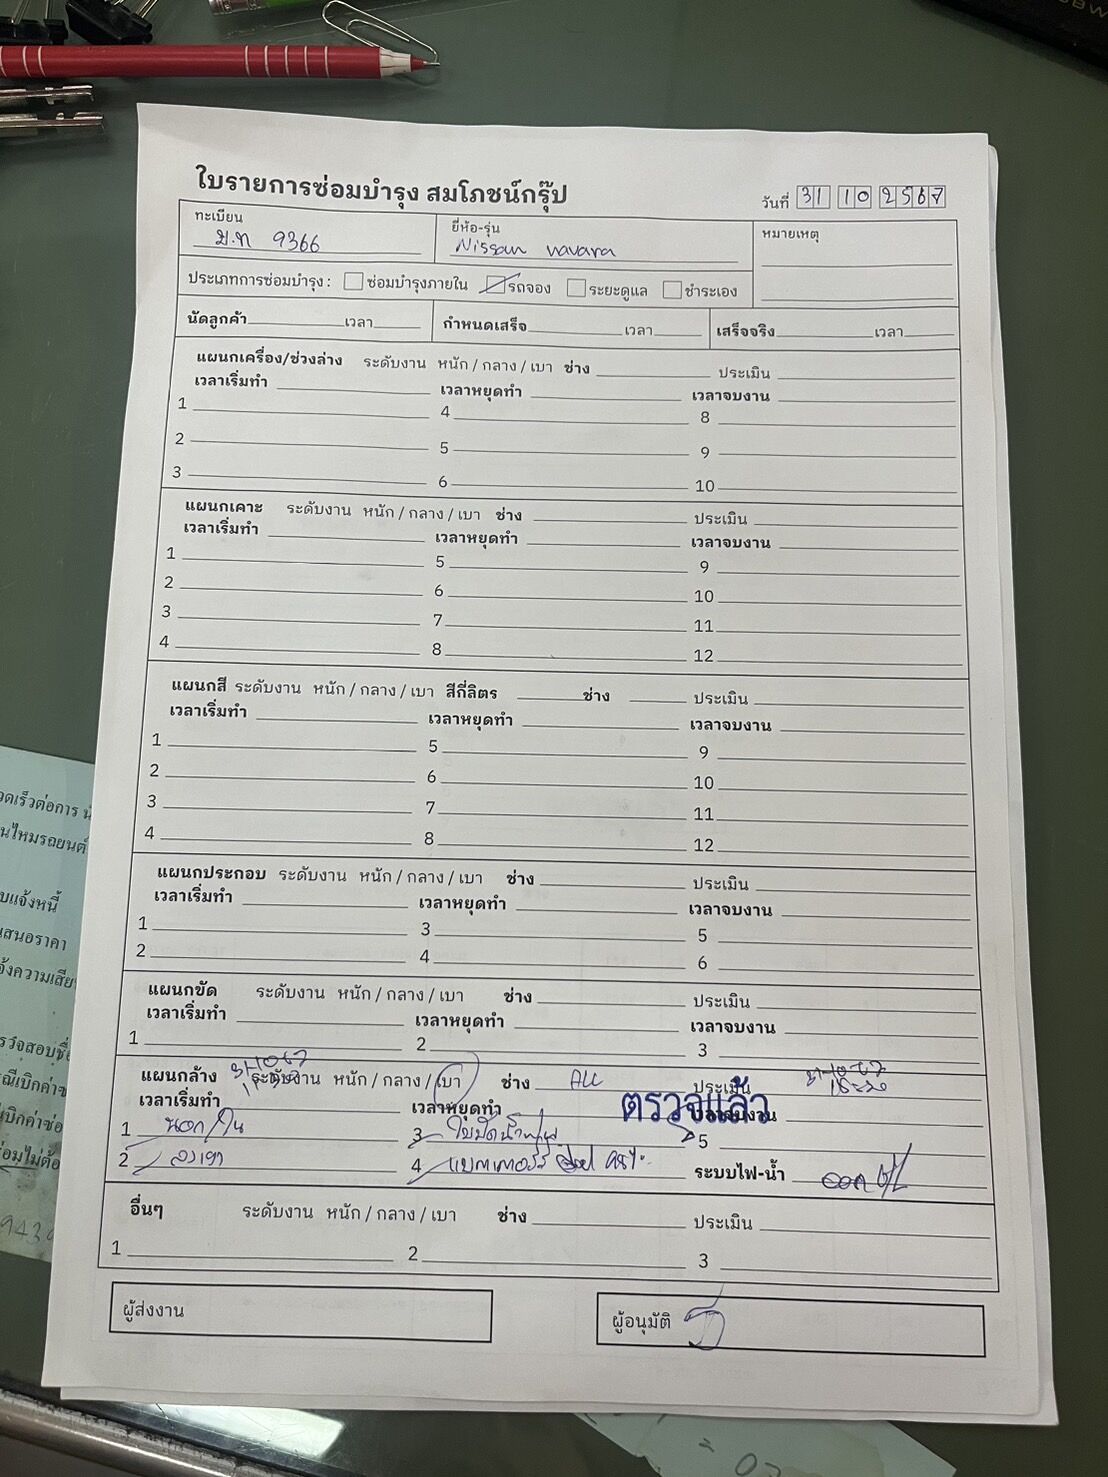 ใบรายการซ่อมบำรุง สมโภชน์กรุ๊ป
วันที่ 31 10 2567
ทะเบียน
9366
ยี่ห้อ-รุ่น
Nissan navara
หมายเหตุ
ประเภทการซ่อมบำรุง : ซ่อมบำรุงภายใน รถจอง ระยะดูแล ชำระเอง
นัดลูกค้า เวลา กำหนดเสร็จ เวลา เสร็จจริง เวลา
แผนกเครื่อง/ช่วงล่าง ระดับงาน หนัก / กลาง / เบา ช่าง ประเมิน
เวลาเริ่มทำ เวลาหยุดทำ เวลาจบงาน
1 4 8
2 5 9
3 6 10
แผนกเคาะ ระดับงาน หนัก / กลาง / เบา ช่าง ประเมิน
เวลาเริ่มทำ เวลาหยุดทำ เวลาจบงาน
1 5 9
2 6 10
3 7 11
4 8 12
แผนกสี ระดับงาน หนัก / กลาง / เบา สีกี่ลิตร ช่าง ประเมิน
เวลาเริ่มทำ เวลาหยุดทำ เวลาจบงาน
1 5 9
2 6 10
3 7 11
4 8 12
แผนกประกอบ ระดับงาน หนัก / กลาง / เบา ช่าง ประเมิน
เวลาเริ่มทำ เวลาหยุดทำ เวลาจบงาน
1 3 5
2 4 6
แผนกขัด ระดับงาน หนัก / กลาง / เบา ช่าง ประเมิน
เวลาเริ่มทำ เวลาหยุดทำ เวลาจบงาน
1 2 3
31-10-67 31-10-67
แผนกล้าง ระดับงาน หนัก / กลาง / เบา ช่าง ALL ประเมิน
เวลาเริ่มทำ เวลาหยุดทำ เวลาจบงาน
ตรวจแล้ว
1 นอก/ใน 3 ใบปัดน้ำฝน 5
2 4 ระบบไฟ-น้ำ
อื่นๆ ระดับงาน หนัก / กลาง / เบา ช่าง ประเมิน
1 2 3
ผู้ส่งงาน
ผู้อนุมัติ
วดเร็วต่อการ
นไหมรถยนต์
บแจ้งหนี้
สนอราคา
จ้งความเสีย
รวจสอบชื่อ
ณีเบิกค่าซ
เบิกค่าซ่อ
ซ่อมไม่ต้อ
943